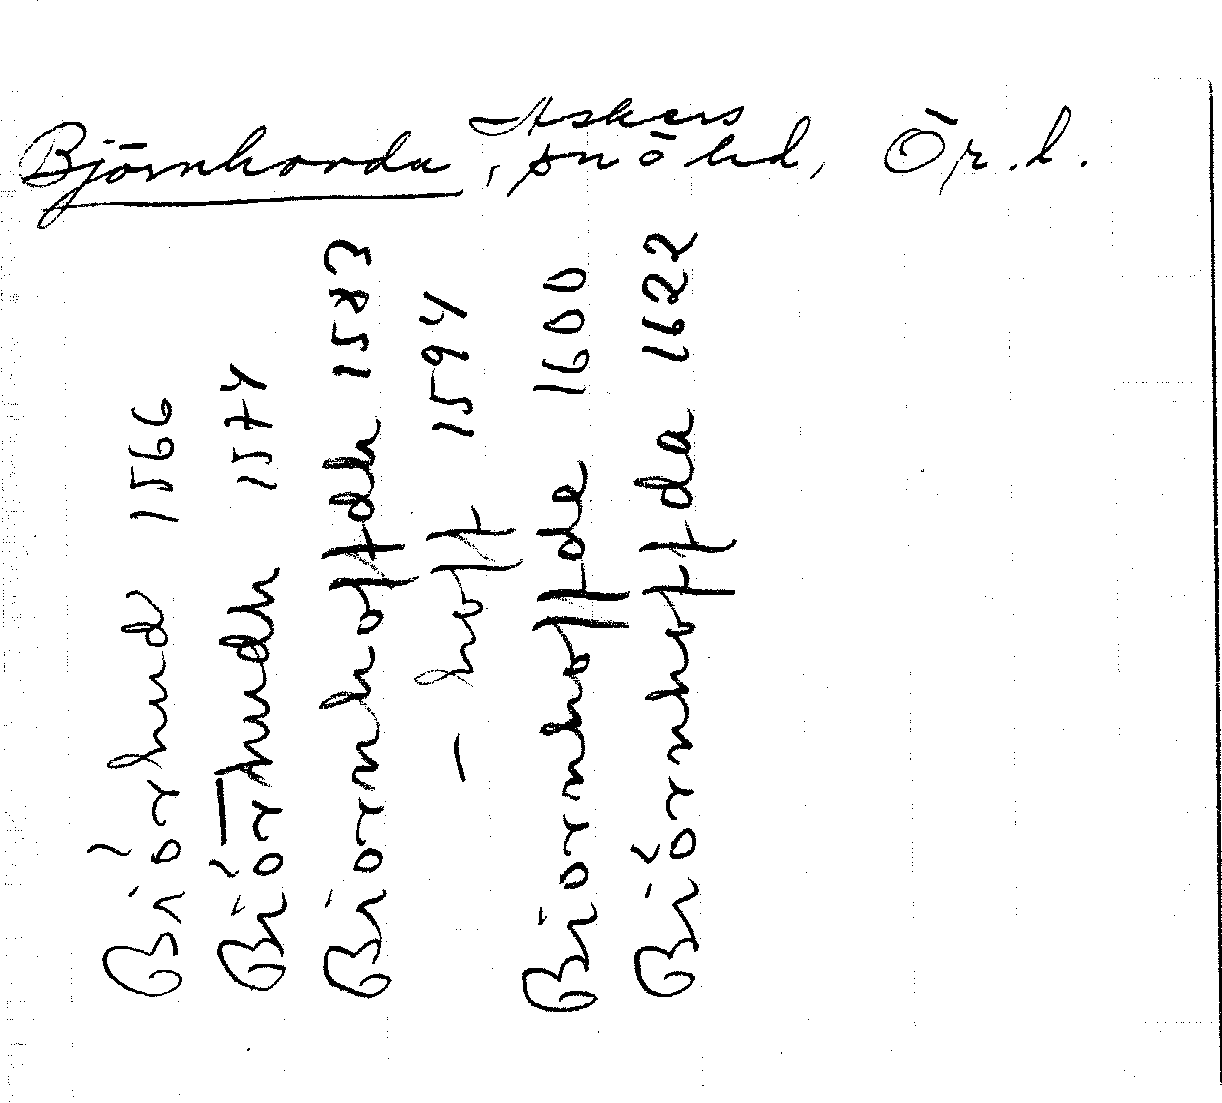 Björnhovda, Askers sn ö hd, Ör. l.
Biörhud 1566
Biörhudh 1574
Biornhoffdh 1583
– hofft 1594
Biornhoffde 1600
Biörnhoffda 1622